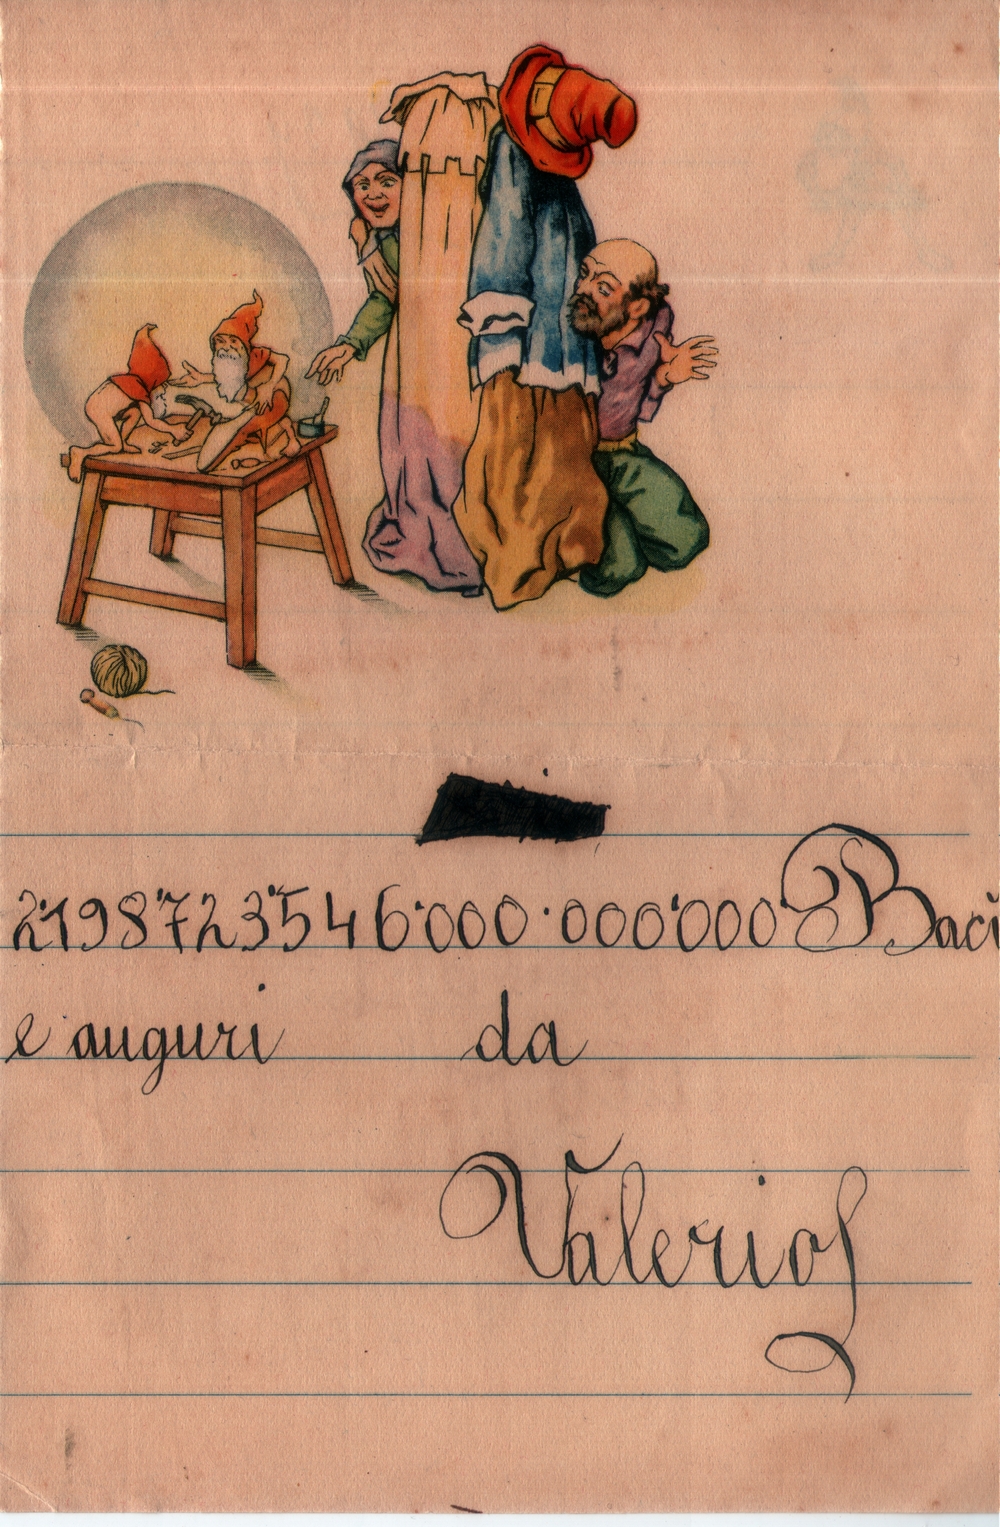 2'198'723'546'000·000'000 Baci
e auguri da
Valerio